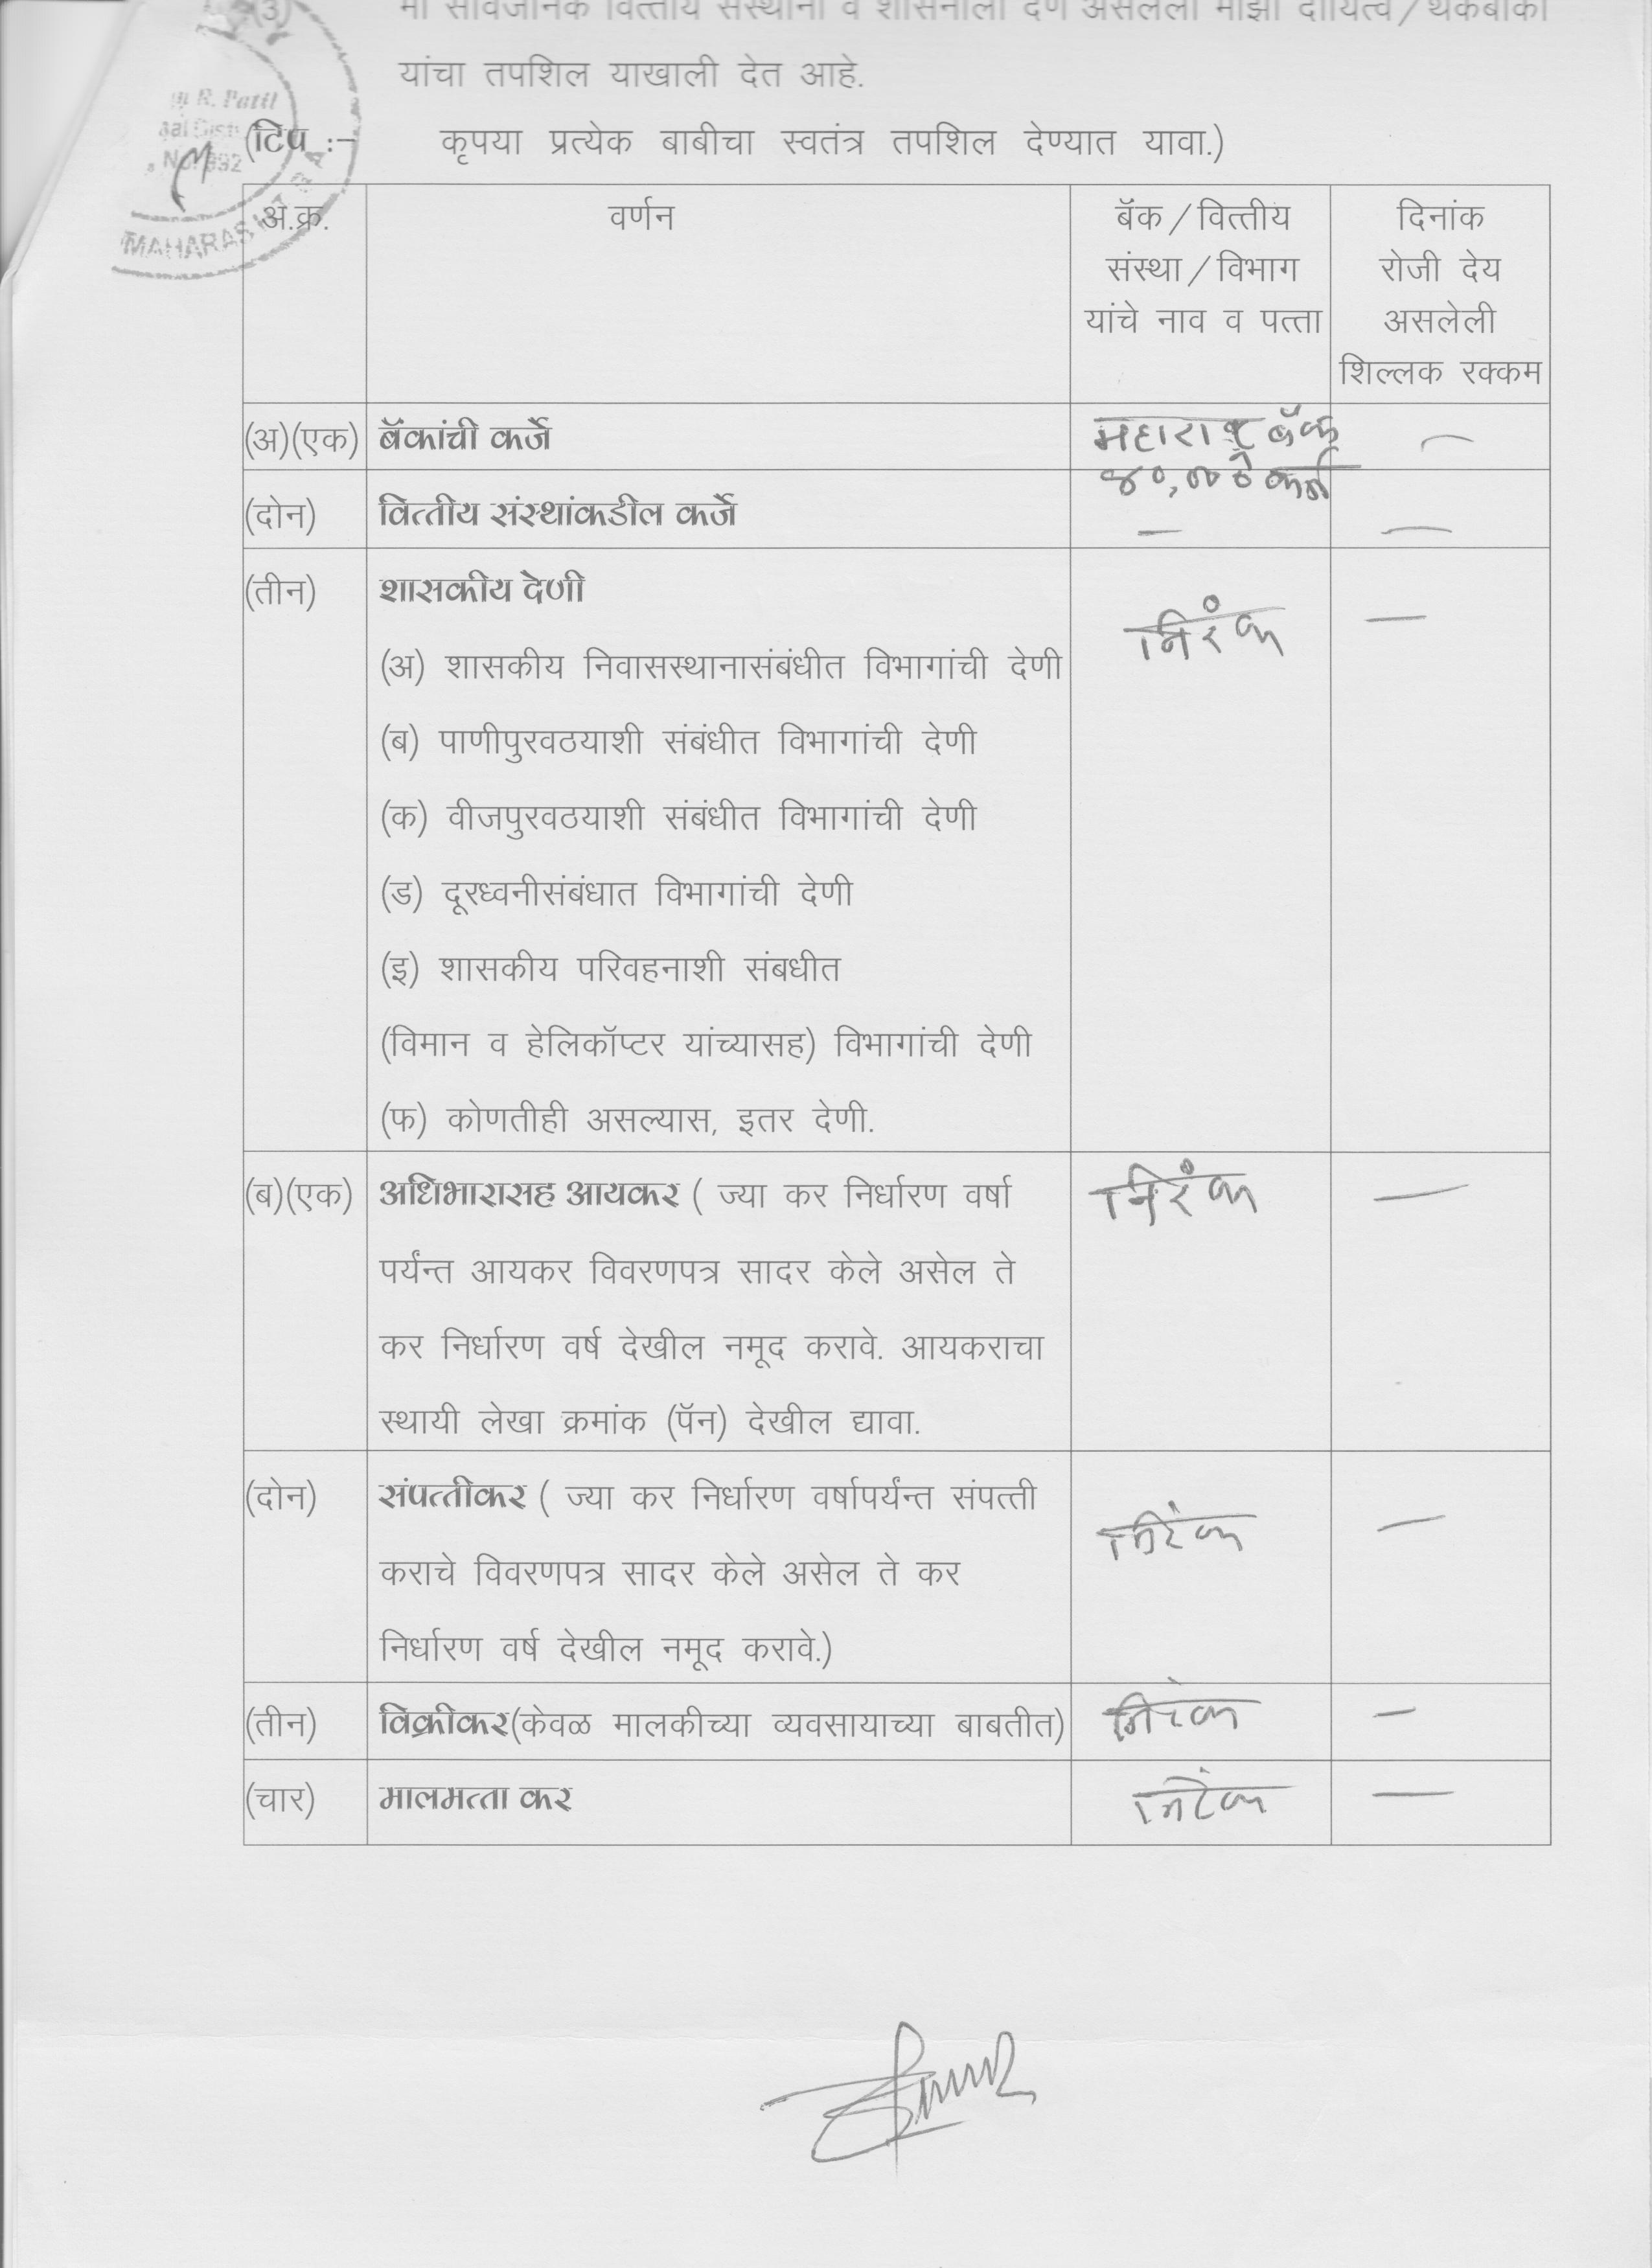 (3)
मी सार्वजनिक वित्तीय संस्थांना व शासनाला देणे असलेली माझी दायित्व/थकबाकी
यांचा तपशिल याखाली देत आहे.
R. Patil
(टिप :- कृपया प्रत्येक बाबीचा स्वतंत्र तपशिल देण्यात यावा.)
MAHARASHTRA
अ.क्र. वर्णन बॅक/वित्तीय दिनांक
संस्था/विभाग रोजी देय
यांचे नाव व पत्ता असलेली
शिल्लक रक्कम
(अ)(एक) बॅकांची कर्जे महाराष्ट्र बँक —
४०,००० कर्ज
(दोन) वित्तीय संस्थांकडील कर्जे — —
(तीन) शासकीय देणी निरंक —
(अ) शासकीय निवासस्थानासंबंधीत विभागांची देणी
(ब) पाणीपुरवठयाशी संबंधीत विभागांची देणी
(क) वीजपुरवठयाशी संबंधीत विभागांची देणी
(ड) दूरध्वनीसंबंधात विभागांची देणी
(इ) शासकीय परिवहनाशी संबधीत
(विमान व हेलिकॉप्टर यांच्यासह) विभागांची देणी
(फ) कोणतीही असल्यास, इतर देणी.
(ब)(एक) अधिभारासह आयकर ( ज्या कर निर्धारण वर्षा निरंक —
पर्यंन्त आयकर विवरणपत्र सादर केले असेल ते
कर निर्धारण वर्ष देखील नमूद करावे. आयकराचा
स्थायी लेखा क्रमांक (पॅन) देखील द्यावा.
(दोन) संपत्तीकर ( ज्या कर निर्धारण वर्षापर्यंन्त संपत्ती निरंक —
कराचे विवरणपत्र सादर केले असेल ते कर
निर्धारण वर्ष देखील नमूद करावे.)
(तीन) विक्रीकर(केवळ मालकीच्या व्यवसायाच्या बाबतीत) निरंक —
(चार) मालमत्ता कर निरंक —